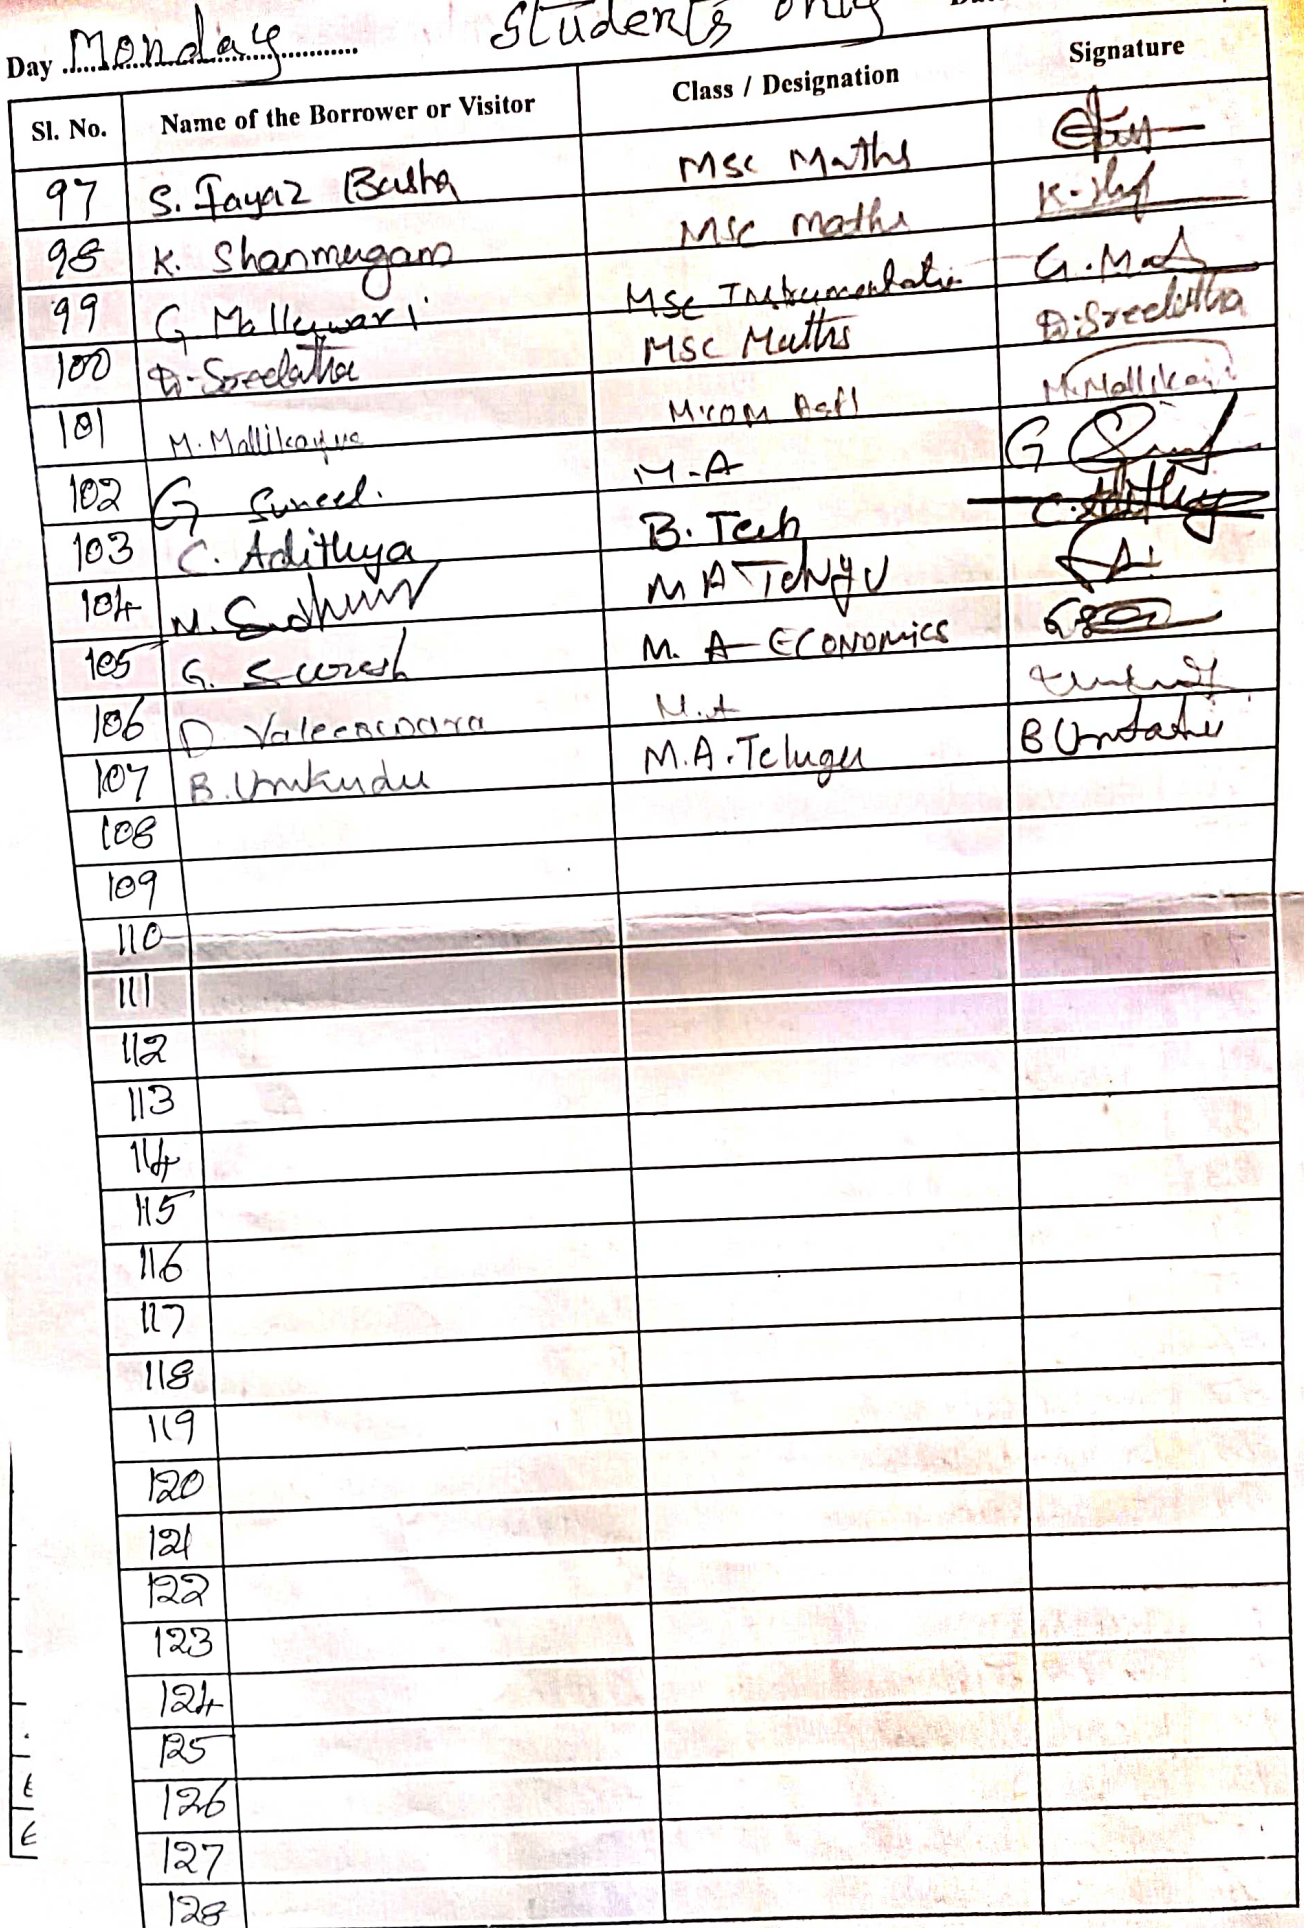 Day Monday Students only
Sl. No. Name of the Borrower or Visitor Class / Designation Signature
97 S. Fayaz Basha Msc Maths
98 K. Shanmugam Msc Maths
99 G Malleswari Msc Instrumentatio
100 D. Sreelatha MSC Maths D. Sreelatha
101 M. Mallikarjuna M.COM M. Mallikarj
102 G Suneel. M.A G
103 C. Adithya B. Tech C. Adithya
104 M. Sudhur M A Telugu
105 G. Suresh M. A ECONOMICS
106 D M.A
107 B. M.A. Telugu B
108
109
110
111
112
113
114
115
116
117
118
119
120
121
122
123
124
125
126
127
128